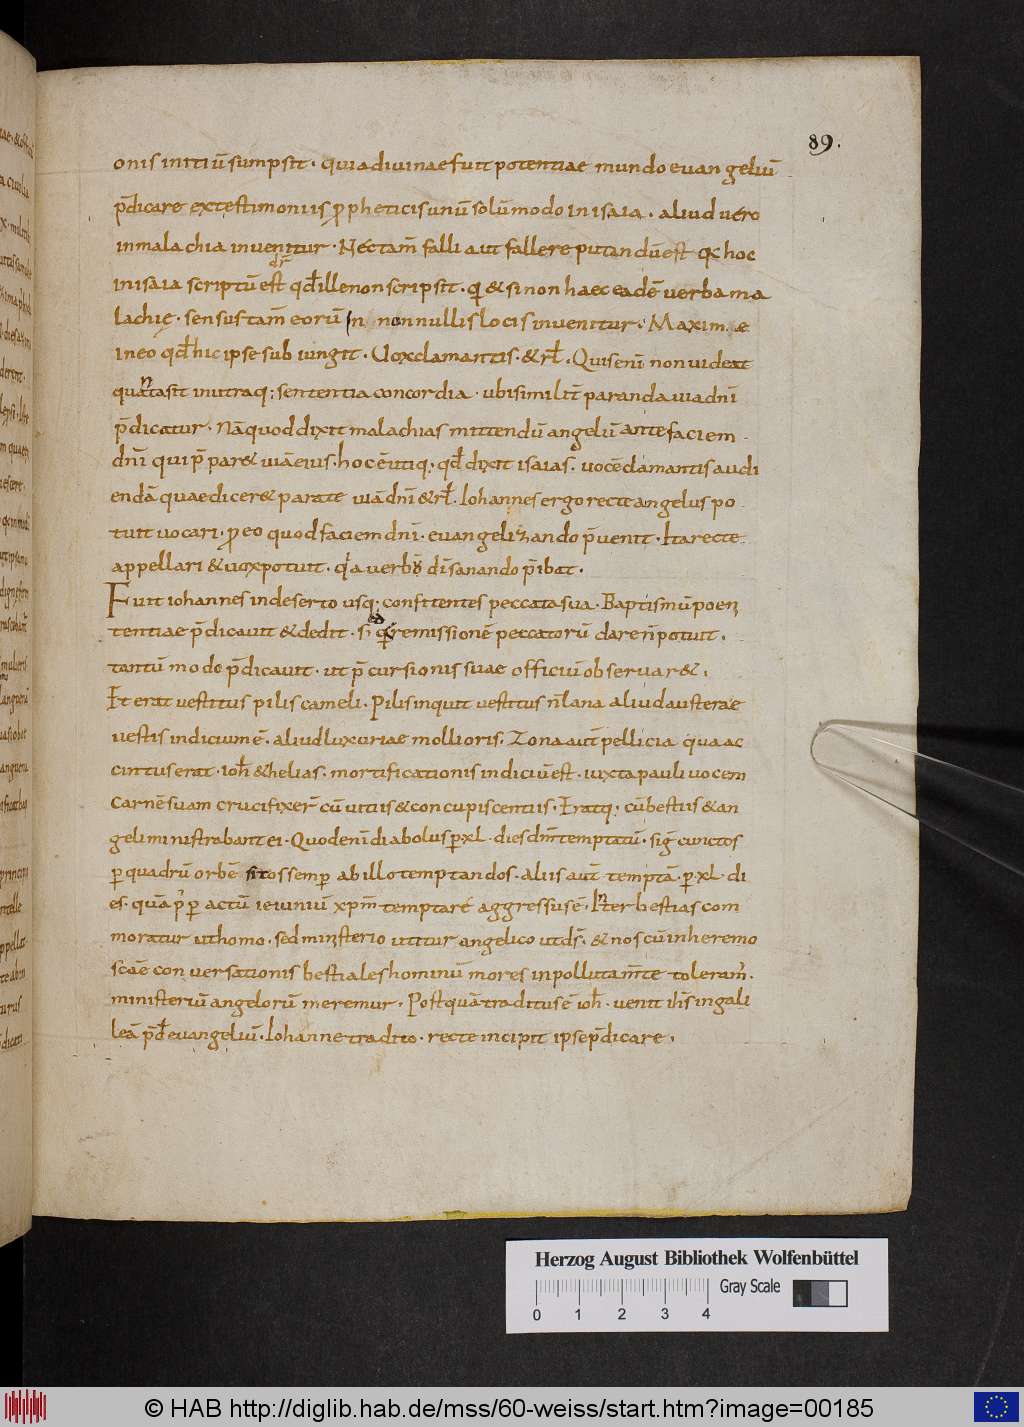 89.
onis initiū sumpsit · quia divinae fuit potentiae mundo evangeliū
p̄dicare ex testimoniis ꝓpheticis unū solū modo in isaia · aliud vero
in malachia invenitur · Nec tam̄ falli aut fallere putandū est qui hoc
in isaia scriptū est qđ ille non scripsit · & si non haec eadē verba ma
lachię · sensus tam̄ eorū In nonnullis locis invenitur · Maxime
in eo qđ hic ipse subiungit · Vox clamantis · & rł · Quis enī non videat
quanta sit in utraq; sententia concordia · ubi similit̄ paranda via dn̄i
p̄dicatur · Nā quod dixit malachias mittendū angelū ante faciem
dn̄i qui p̄par& viā eius · hoc ē utiq; qđ dixit isaias · vocē clamantis audi
endā quae dicer& parate viā dn̄i & rł · Iohannes ergo recte angelus po
tuit vocari · ꝓ eo quod faciem dn̄i · evangelizando p̄venit · Ita recte
appellari & vox potuit · qa verbū dn̄i sonando p̄ibat ·
Fuit iohannes in deserto usq; confitentes peccata sua · Baptismū poeni
tentiae p̄dicavit & dedit · si remissionē peccatorū dare n̄ potuit ·
tantū modo p̄dicavit · ut p̄cursionis suae officiū observar& ·
Et erat vestitus pilis cameli · Pilis inquit vestitus n̄ lana aliud austerae
vestis indicium ē · aliud luxuriae mollioris · Zona aut̄ pellicia qua ac
cintus erat · ioh̄ & helias · mortificationis indiciū est · iuxta pauli vocem
carnē suam crucifixer̄ cū vitiis & concupiscentiis · Eratq; cū bestiis & an
geli ministrabant ei · Quod enī diabolus ꝑ xl · dies dn̄m temptatū · sig̅ cunctos
ꝑ quadrū orbē sitos semꝑ ab illo temptandos · aliis aut̄ temptā · ꝑ xl · di
es · quā p̄ ꝑactū ieiuniū xp̄m temptare aggressus ē · Inter bestias com
moratur ut homo · sed ministerio utitur angelico ut ds̄ · & nos cū in heremo
scāe conversationis bestiales hominū mores inpolluta m̄te toleram̄ ·
ministeriū angelorū meremur · Postquā traditus ē ioh̄ · venit ih̄s in gali
leā p̄đ evangeliū · Iohanne tradito · recte incipit ipse p̄dicare ·
Herzog August Bibliothek Wolfenbüttel
Gray Scale
0 1 2 3 4
© HAB http://diglib.hab.de/mss/60-weiss/start.htm?image=00185